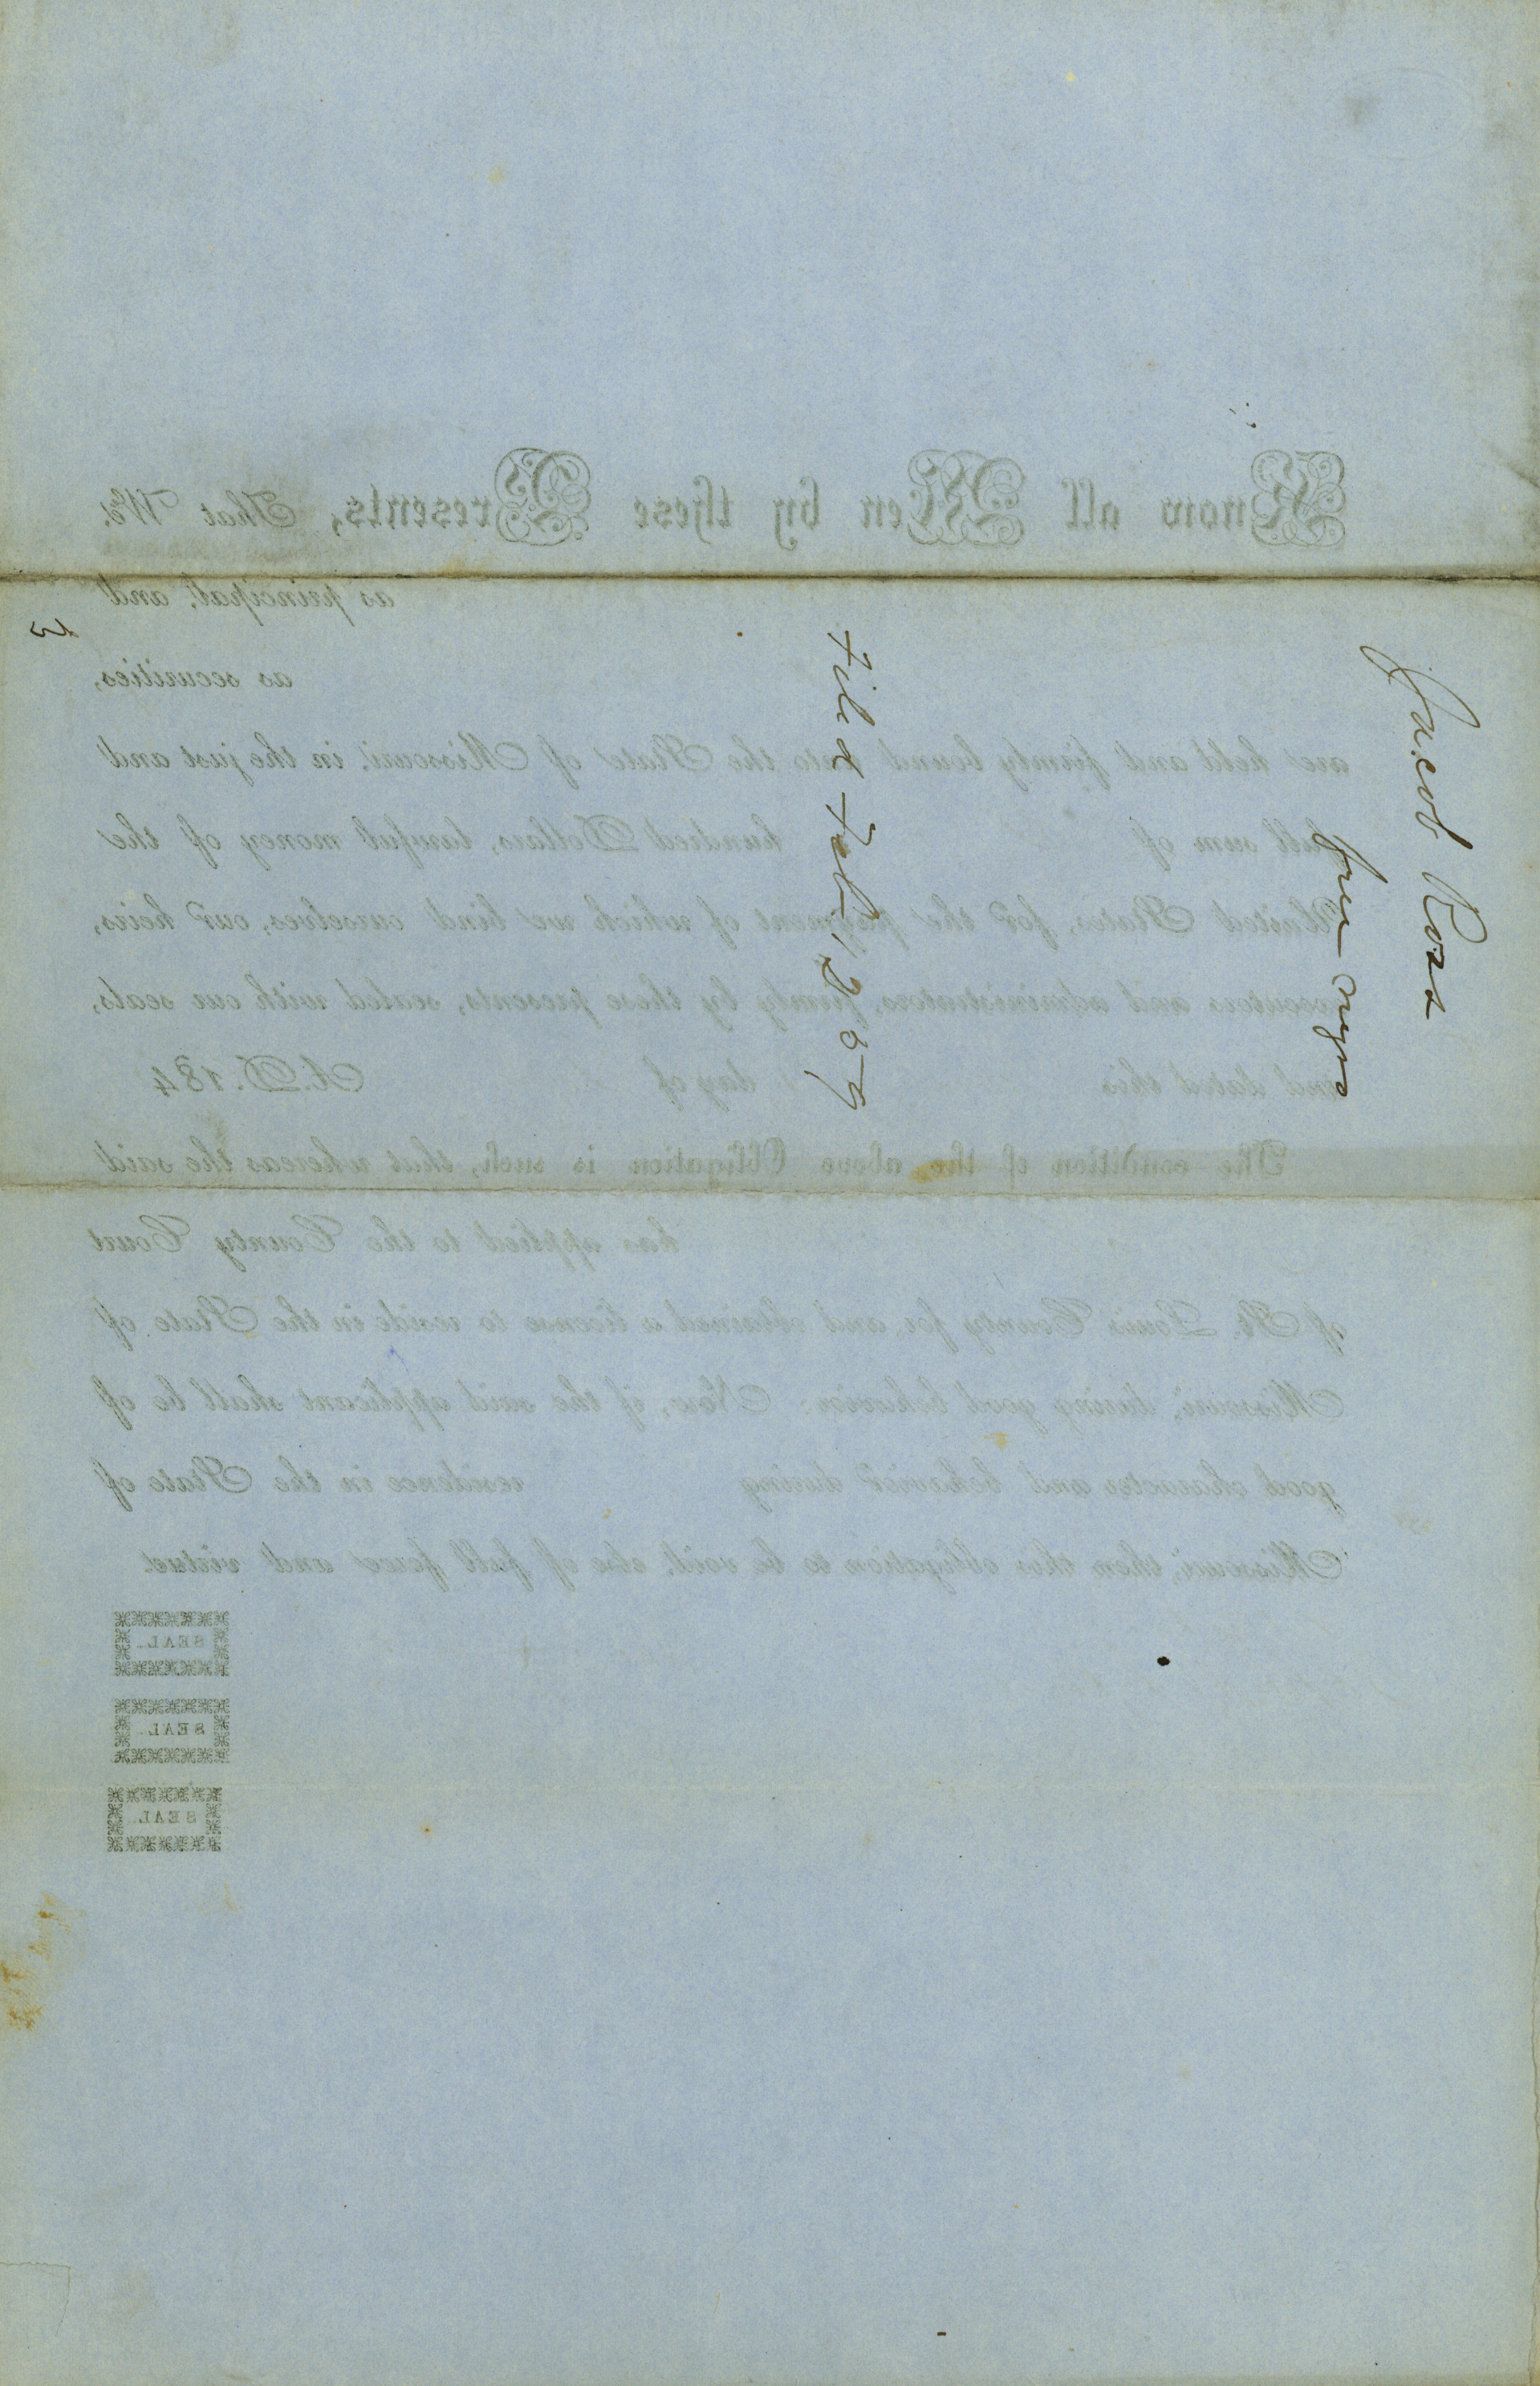 Jacob Ross
free negro
Filed Feb
3
Know all Men by these Presents, That We,
as principal, and
as securities,
are held and firmly bound unto the State of Missouri, in the just and
full sum of hundred Dollars, lawful money of the
United States, for the payment of which we bind ourselves, our heirs,
executors and administrators, firmly by these presents, sealed with our seals,
and dated this day of A.D. 184
The condition of the above Obligation is such, that whereas the said
has applied to the County Court
of St. Louis County for and obtained a license to reside in the State of
Missouri, during good behavior: Now, if the said applicant shall be of
good character and behavior during residence in the State of
Missouri, then this obligation to be void, else of full force and virtue.
SEAL.
SEAL.
SEAL.